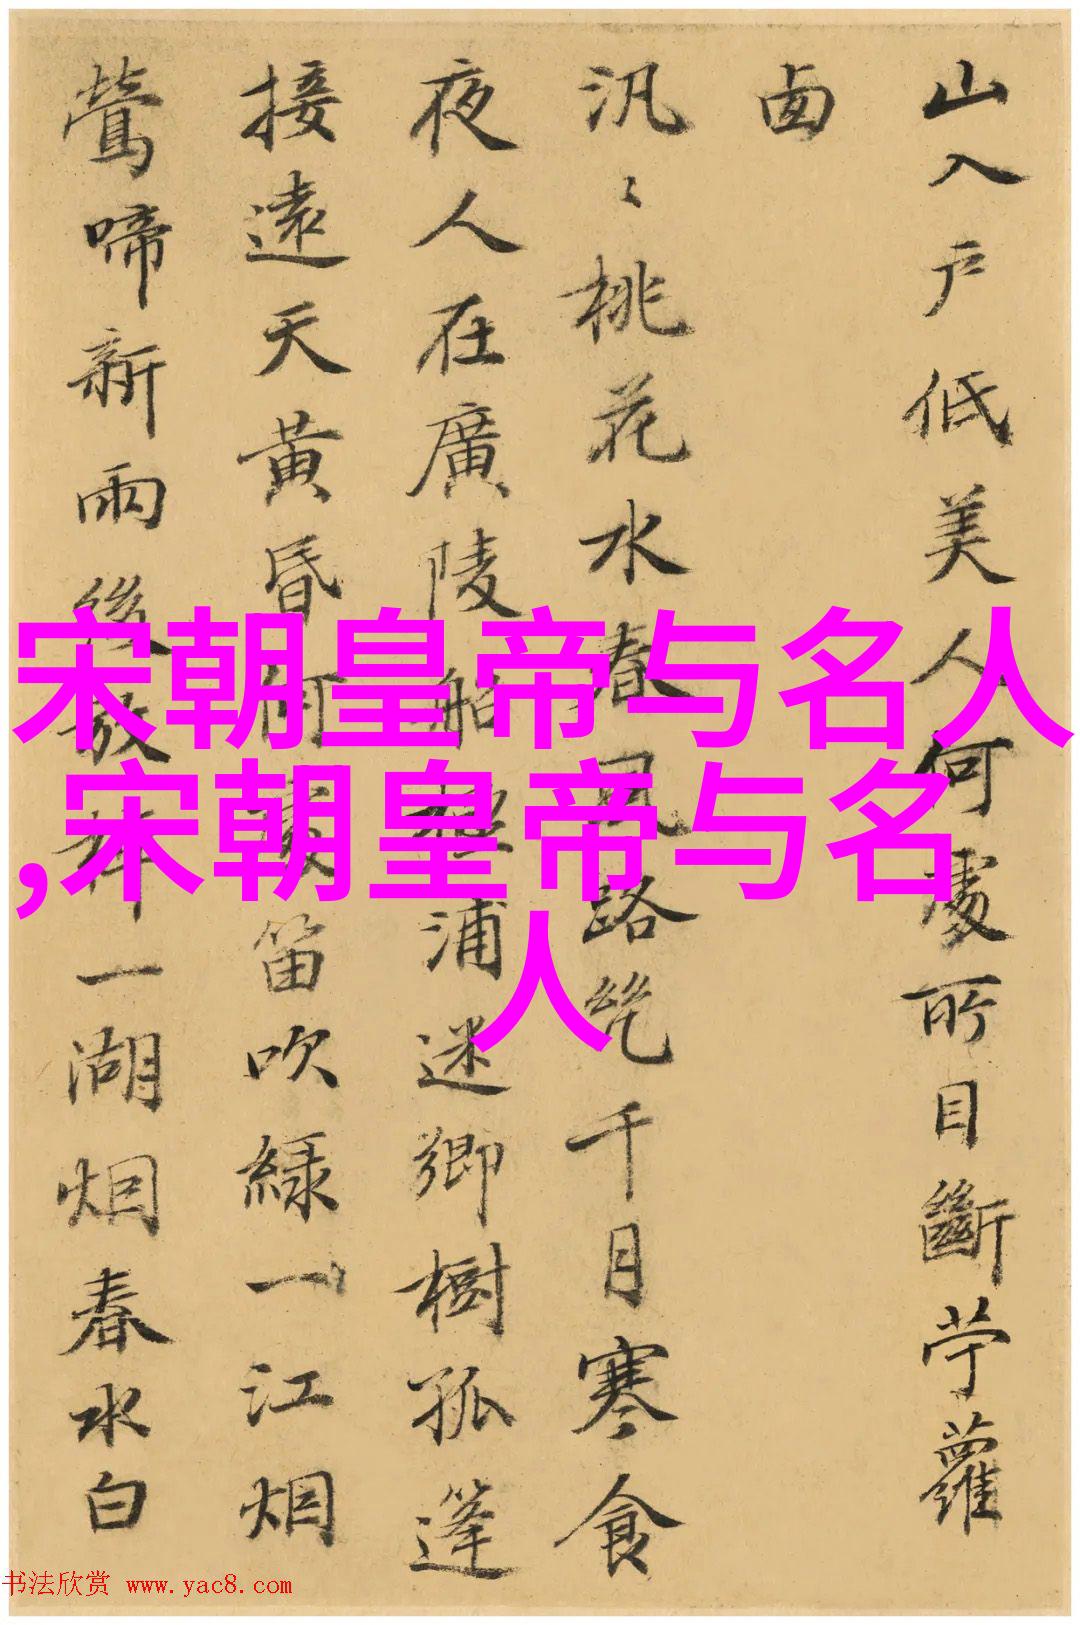 山入戶低美人何處所目斷苧蘿
鹵
汎〻桃花水春風路絶千月寒食
夜人在廣陵船極浦迷鄉樹孤篷
接遠天黃昏何處笛吹綠一江烟
鶯啼新雨後放艇一湖烟春水白
宋朝皇帝与名人
,宋朝皇帝与名
人
书法欣赏 www.yac8.com